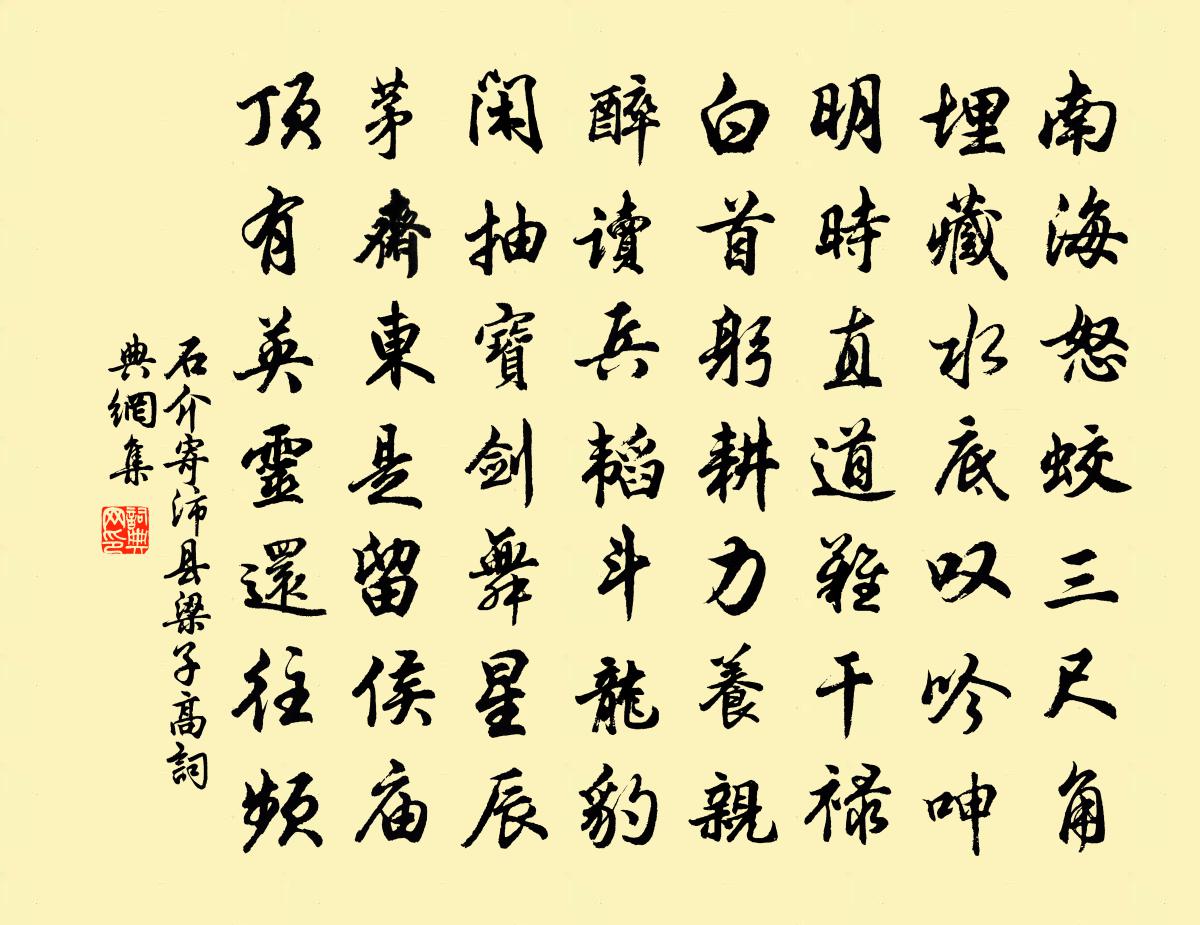 南海怒蛟三尺角
埋藏水底叹吟呻
明時直道難干禄
白首躬耕力養親
醉讀兵韬斗龍豹
闲抽寶剑舞星辰
茅齋東是留侯庙
頂有英靈還往頻
石介寄沛县梁子高詞
典網集
詞典
网印